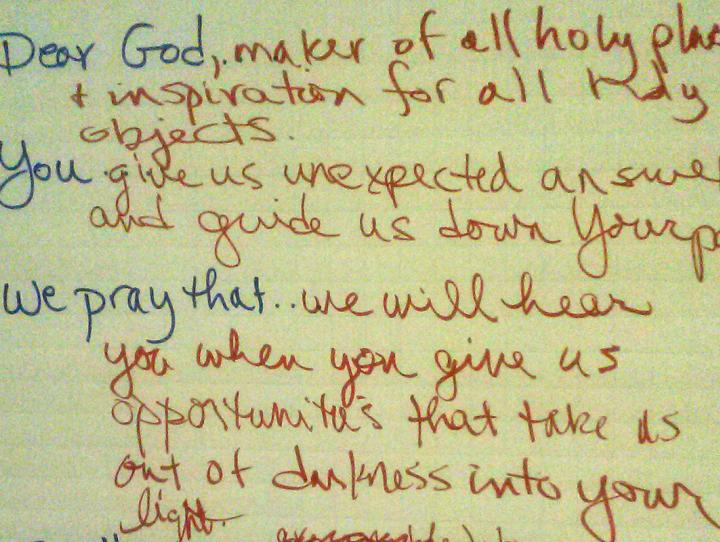 Dear God, maker of all holy plac
+ inspiration for all Holy
objects.
You give us unexpected answe
and guide us down Your p
We pray that..we will hear
you when you give us
opportunitu's that take us
out of darkness into your
light.